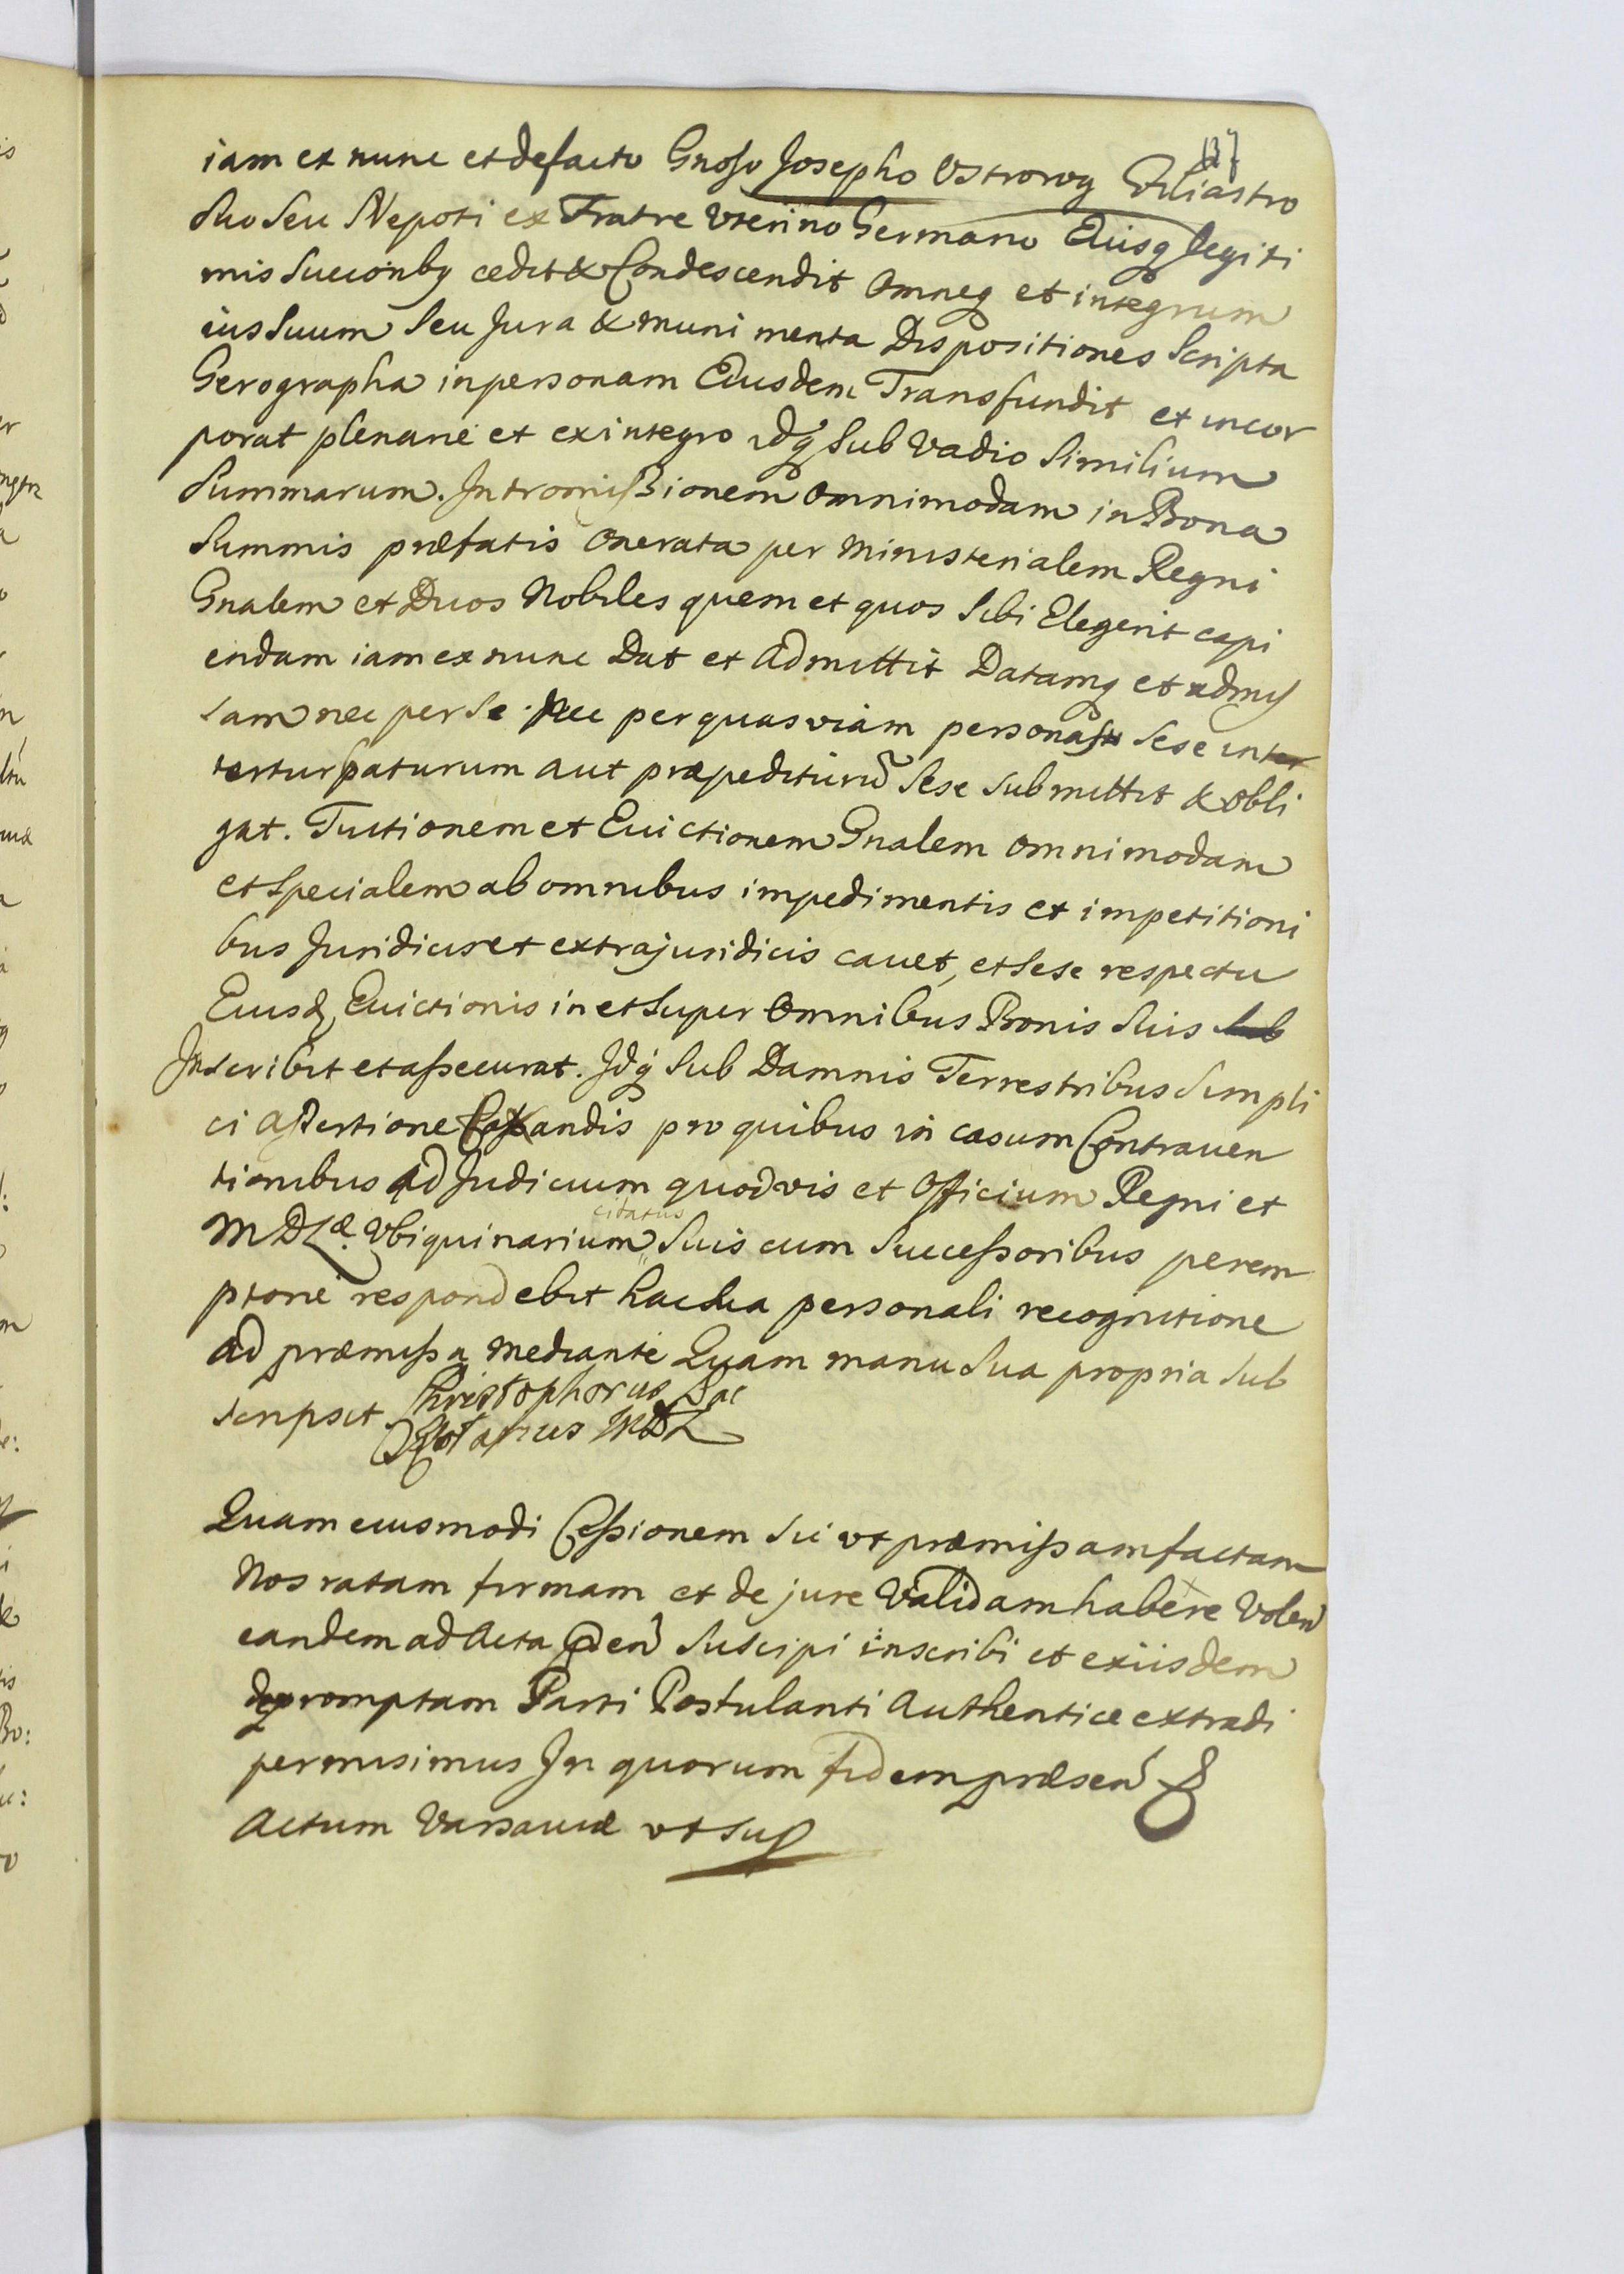 137
iam ex nunc et defacto Gnoso Josepho Ostrorog Filiastro
Suo Seu Nepoti ex Fratre Vterino Germano Eiusq legiti
mis Succonbg cedit & Condescendit Omneq et integrum
ius Suum Seu Jura & muni menta Dispositiones Scripta
Gerographa in personam Eiusdem Transfundit et incor
porat plenarie et ex integro idq Sub Vadio Similium
Summarum. Intromissionem Omnimodam in Bona
Summis præfatis Onerata per Ministerialem Regni
Gnalem et Duos Nobiles quem et quos Sibi Elegerit capi
endam iam ex nunc Dat et Admittit Datamq et admis
sam nec per Se nec per quasviam personas Sese
terturpaturum aut præpediturũ Sese Submittit & Obli
gat. Tuitionem et Euictionem Gnalem Omnimodam
et Specialem ab omnibus impedimentis et impetitioni
bus Juridicis et extrajuridicis cauet, et Sese respectu
Eiusd Euictionis in et Super Omnibus Bonis Suis
Inscribit et assecurat. Idq Sub Damnis Terrestribus Simpli
ci assertione Taxandis pro quibus in casum Contrauen
tionibus Ad Judicium quodvis et Officium Regni et
MDLæ. Vbiquinarium citatus Suis cum Successoribus perem
ptorie respondebit hac Sua personali recognitione
ad præmissa mediante Quam manu Sua propria Sub
scripsit Christophorus Pac
Notarius MDL
Quam eiusmodi Cessionem Sic vt præmissam factam
Nos ratam firmam et de jure Validam habere Volen
eandem ad Acta pden Suscipi inscribi et exiisdem
depromptam Parti Postulanti Authentice extradi
permisimus In quorum fidem præsen &
Actum Varsauiæ vt sup